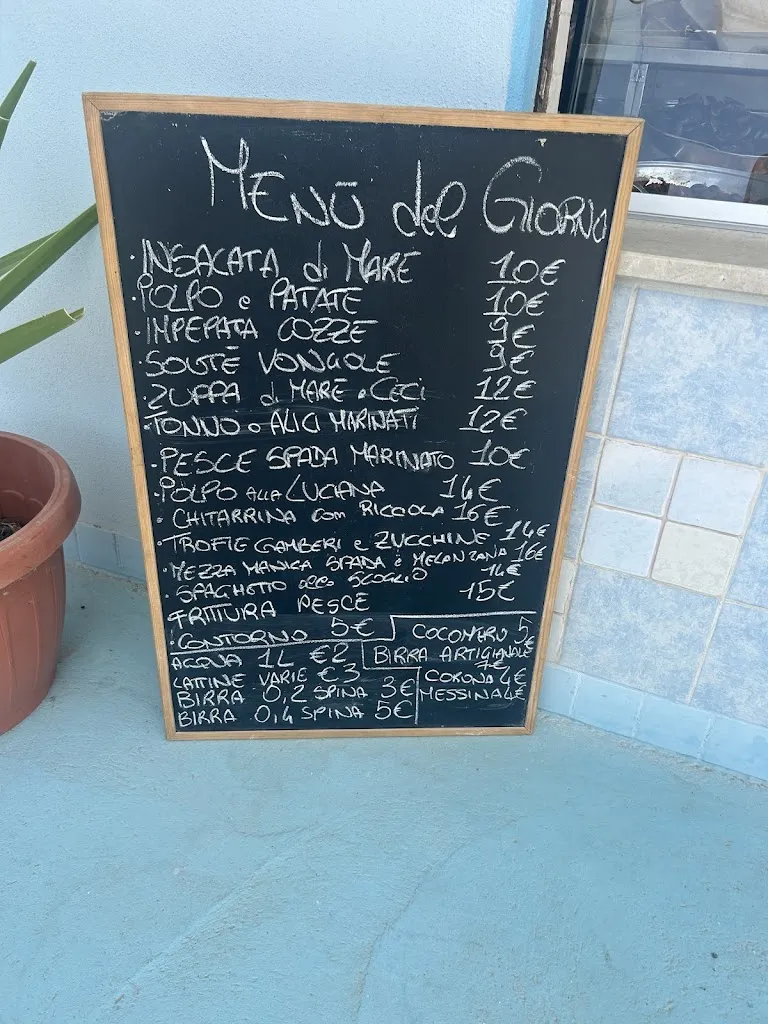 MENÙ del GIORNO
· INSALATA di MARE 10€
· POLPO e PATATE 10€
· IMPEPATA COZZE 9€
· SOUTÈ VONGOLE 9€
· ZUPPA di MARE e CECI 12€
· TONNO o ALICI MARINATI 12€
· PESCE SPADA MARINATO 10€
· POLPO ALLA LUCIANA 14€
· CHITARRINA con RICCIOLA 16€
· TROFIE GAMBERI e ZUCCHINE 14€
· MEZZA MANICA SPADA e MELANZANA 16€
· SPAGHETTO allo SCOGLIO 14€
· FRITTURA PESCE 15€
· CONTORNO 5€
COCOMERO 5€
ACQUA 1L €2
BIRRA ARTIGIANALE 7€
LATTINE VARIE €3
CORONA 4€
BIRRA 0,2 SPINA 3€
MESSINA 4€
BIRRA 0,4 SPINA 5€